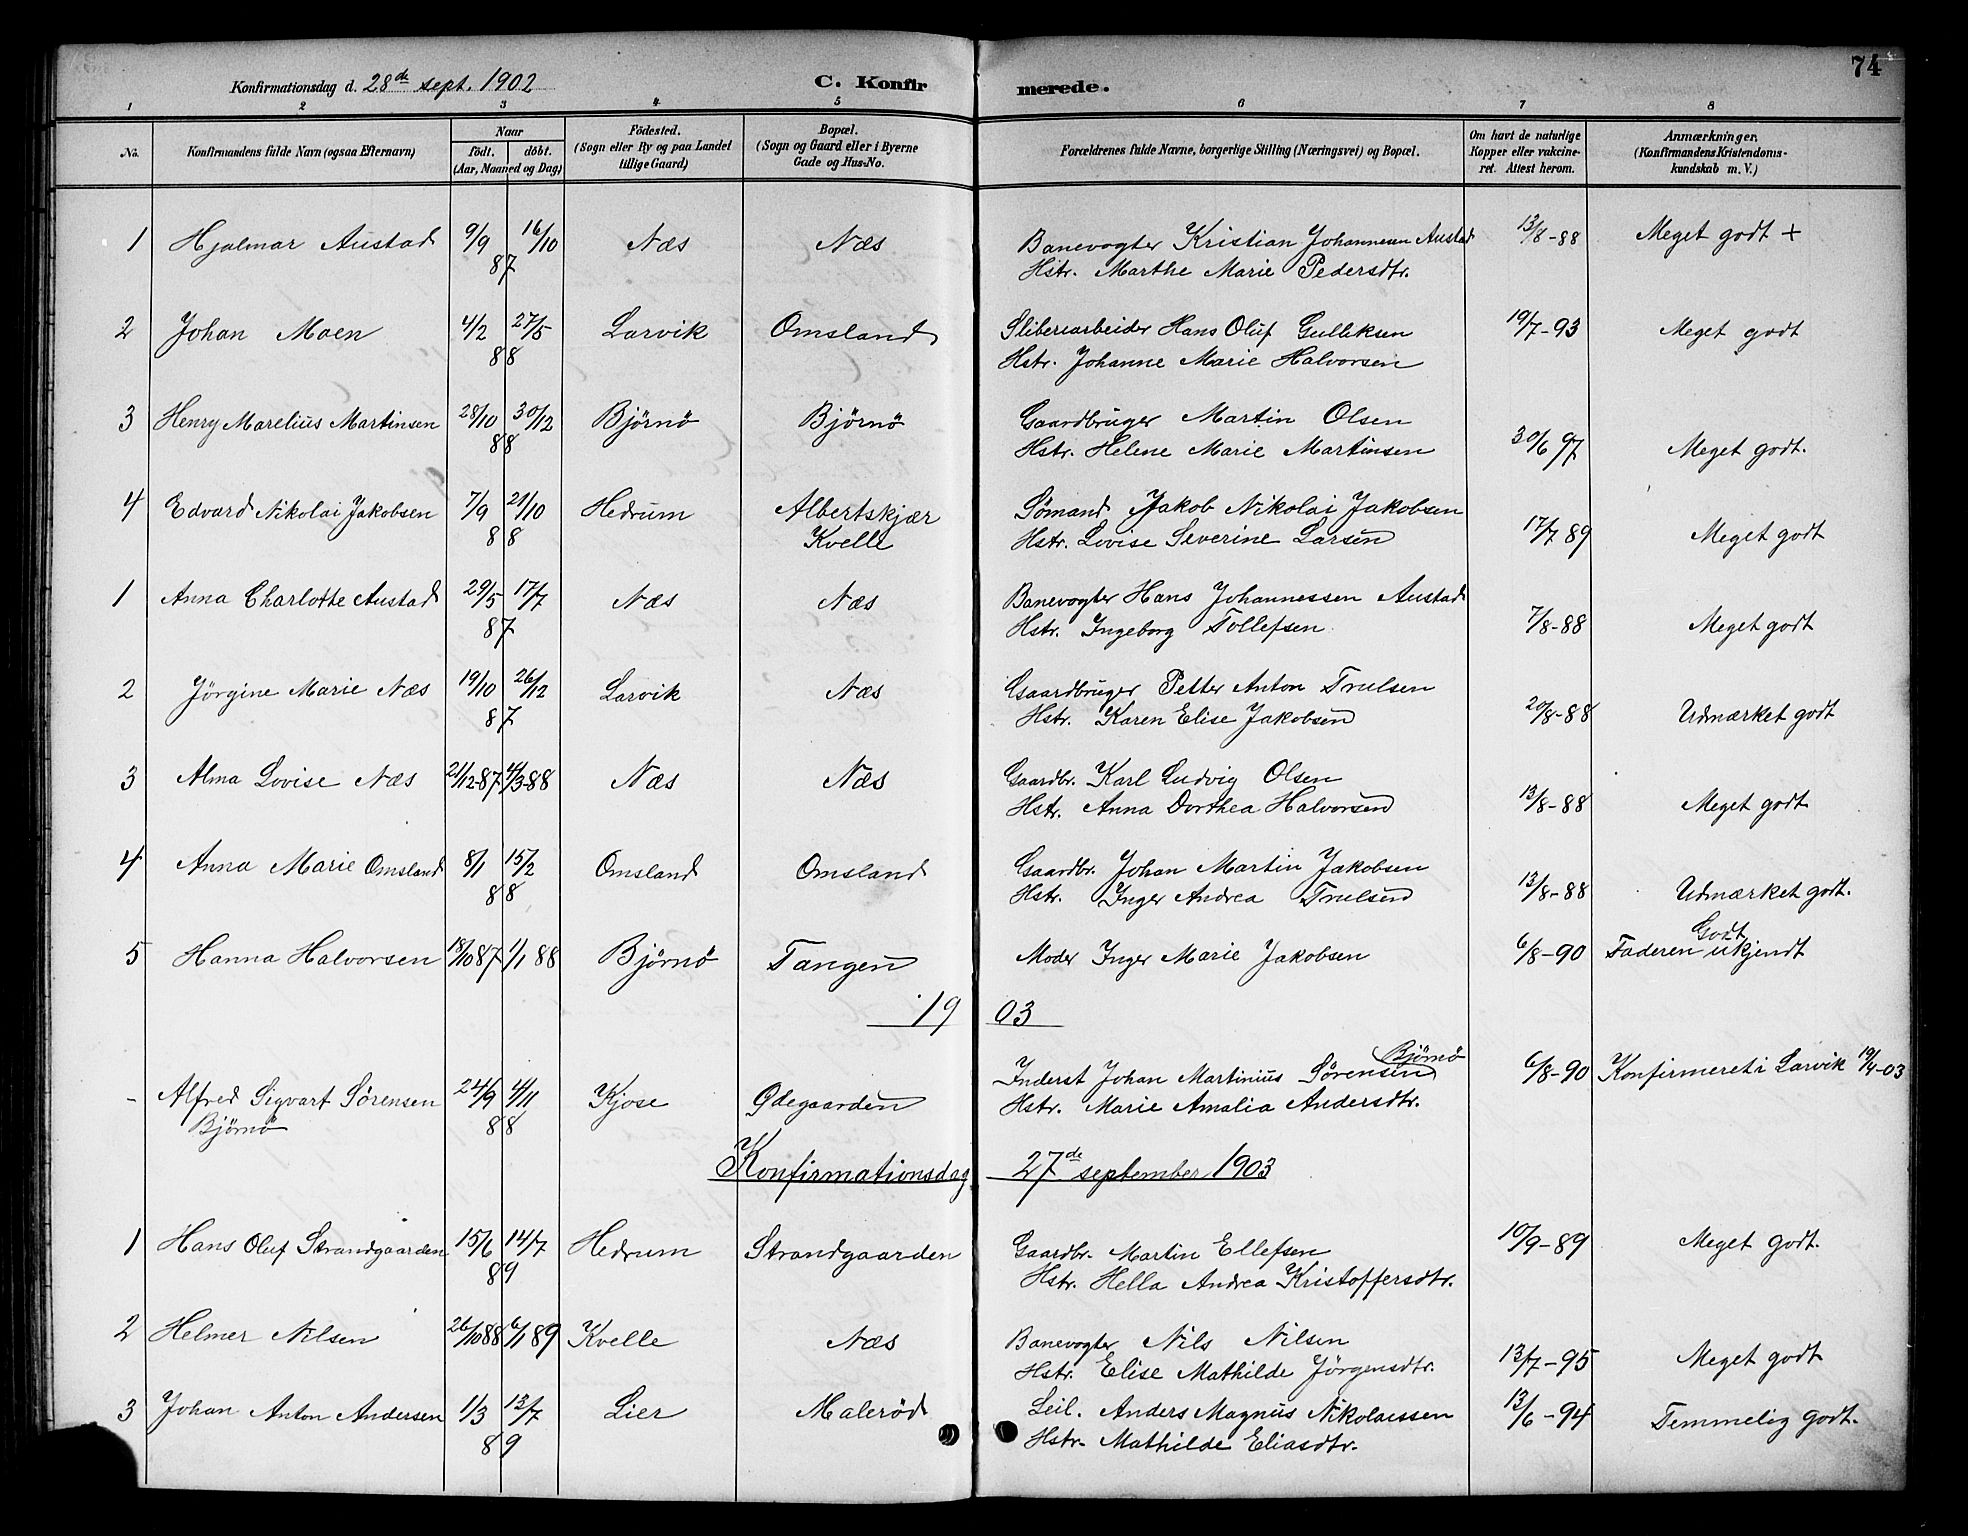 Konfirmationsdag d. 28de sept. 1902 C. Konfirmerede. 74
1 2 3 4 5 6 7 8
No. Konfirmandens fulde Navn (ogsaa Efternavn) Naar födt. döbt. (Aar, Maaned og Dag) Födested. (Sogn eller By og paa Landet tillige Gaard) Bopæl. (Sogn og Gaard eller i Byerne Gade og Hus-No. Forældrenes fulde Navne, borgerlige Stilling (Næringsvei) og Bopæl. Om havt de naturlige Kopper eller vakcineret. Attest herom. Anmærkninger, (Konfirmandens Kristendomskundskab m. V.)
1 Hjalmar Austad 9/9 16/10 Næs Næs Banevogter Kristian Johannesen Austad 13/8-88 Meget godt +
87 Hstr. Marthe Marie Pedersdtr.
2 Johan Moen 4/2 27/5 Larvik Omsland Sliberiarbeider Hans Oluf Gulliksen 19/7-93 Meget godt
88 Hstr. Johanne Marie Halvorsen
3 Henry Marelius Martinsen 28/10 30/12 Bjørnø Bjørnø Gaardbruger Martin Olsen
88 Hstr. Helene Marie Martinsen 30/6 97 Meget godt.
4 Edvard Nikolai Jakobsen 7/9 21/10 Hedrum Albertskjær Sømand Jakob Nikolai Jakobsen
88 Kvelle Hstr. Lovise Severine Larsen 17/7 89 Meget godt
1 Anna Charlotte Austad 29/5 17/7 Næs Næs Banevogter Hans Johannessen Austad
87 Hstr. Ingeborg Tollefsen 7/8-88 Meget godt
2 Jörgine Marie Næs 19/10 26/12 Larvik Næs Gaardbruger Petter Anton Trulsen
87 Hstr. Karen Elise Jakobsen 20/8-88 Udmærket godt
3 Alma Lovise Næs 21/12-87 4/3-88 Næs Næs Gaardbr. Karl Ludvig Olsen
Hstr. Anna Dorthea Halvorsen 13/8-88 Meget godt
4 Anna Marie Omsland 8/1 15/2 Omsland Omsland Gaardbr. Johan Martin Jakobsen
88 Hstr. Inger Andrea Trulsen 13/8-88 Udmærket godt.
Godt
5 Hanna Halvorsen 18/10 87 1/1 88 Bjørnø Tangen Moder Inger Marie Jakobsen 6/8-90 Faderen ukjendt
1903
Bjørnø
- Alfred Sigvart Sørensen 24/9 4/11 Kjose Ødegaarden Inderst Johan Martinius Sørensen 6/8-90 Konfirmeret i Larvik 19/4-03
Bjørnø 88 Hstr. Marie Amalia Andersdtr.
Konfirmationsdag 27de september 1903
1 Hans Oluf Strandgaarden 15/6 14/7 Hedrum Strandgaarden Gaardbr. Martin Ellefsen 10/9-89 Meget godt.
89 Hstr. Hella Andrea Kristoffersdtr.
2 Helmer Nilsen 26/10 88 6/1 89 Kvelle Næs Banevogter Nils Nilsen
Hstr. Elise Mathilde Jörgensdtr. 13/7-95 Meget godt
3 Johan Anton Andersen 1/3 13/7 Lier Malerød Leil. Anders Magnus Nikolaissen 13/6-94 Temmelig godt.
89 Hstr. Mathilde Eliasdtr.